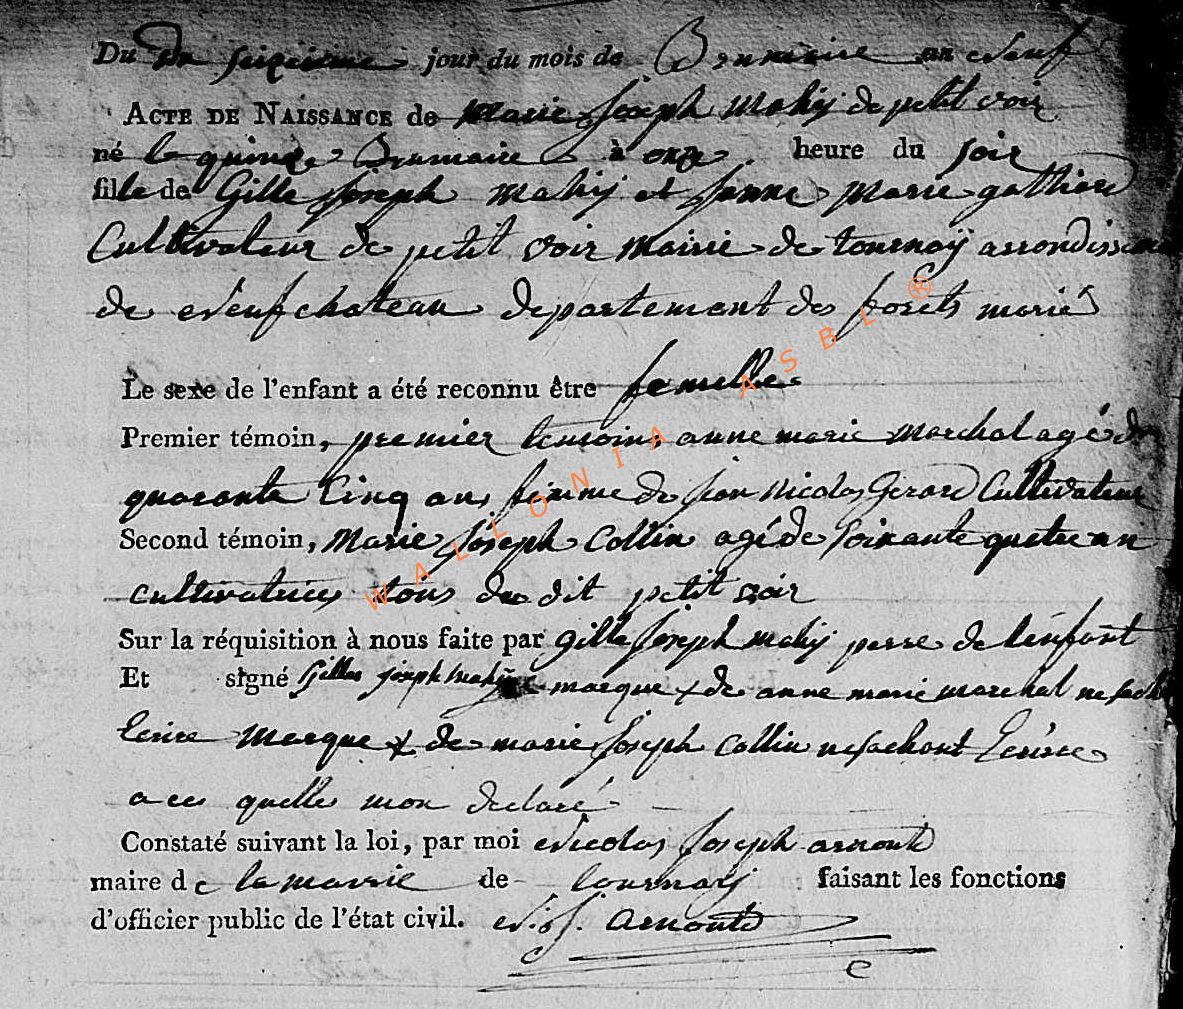 Du du seizieme jour du mois de Brumaire an neuf
ACTE DE NAISSANCE de Marie Joseph Mahij de petit voir
né le quinze Brumaire à onze heure du soir
fille de Gille Joseph Mahij et Janne Marie gathiard
Cultivateur de petit voir Mairie de tournaÿ arrondisseme
de Neufchateau departement des forets marié
Le sexe de l'enfant a été reconnu être femelle
Premier témoin, premier temoin, anne marie Marchal agé de
quarante Cinq ans femme de jean Nicolas Gerard Cultivateur
Second témoin, Marie Joseph Collin agé de soixante quatre an
cultivatrices tous du dit petit voir
Sur la réquisition à nous faite par gille Joseph mahij perre de lenfant
Et signé gilles joseph mahij marque x de anne marie marchal ne sach
Ecrire Marque x de marie Joseph Collin nesachant Ecrire
a ces quelles mon declaré
Constaté suivant la loi, par moi Nicolas Joseph arnould
maire de la mairie de tournaij faisant les fonctions
d'officier public de l'état civil. N. j. Arnould
WALLONIA ASBL ®